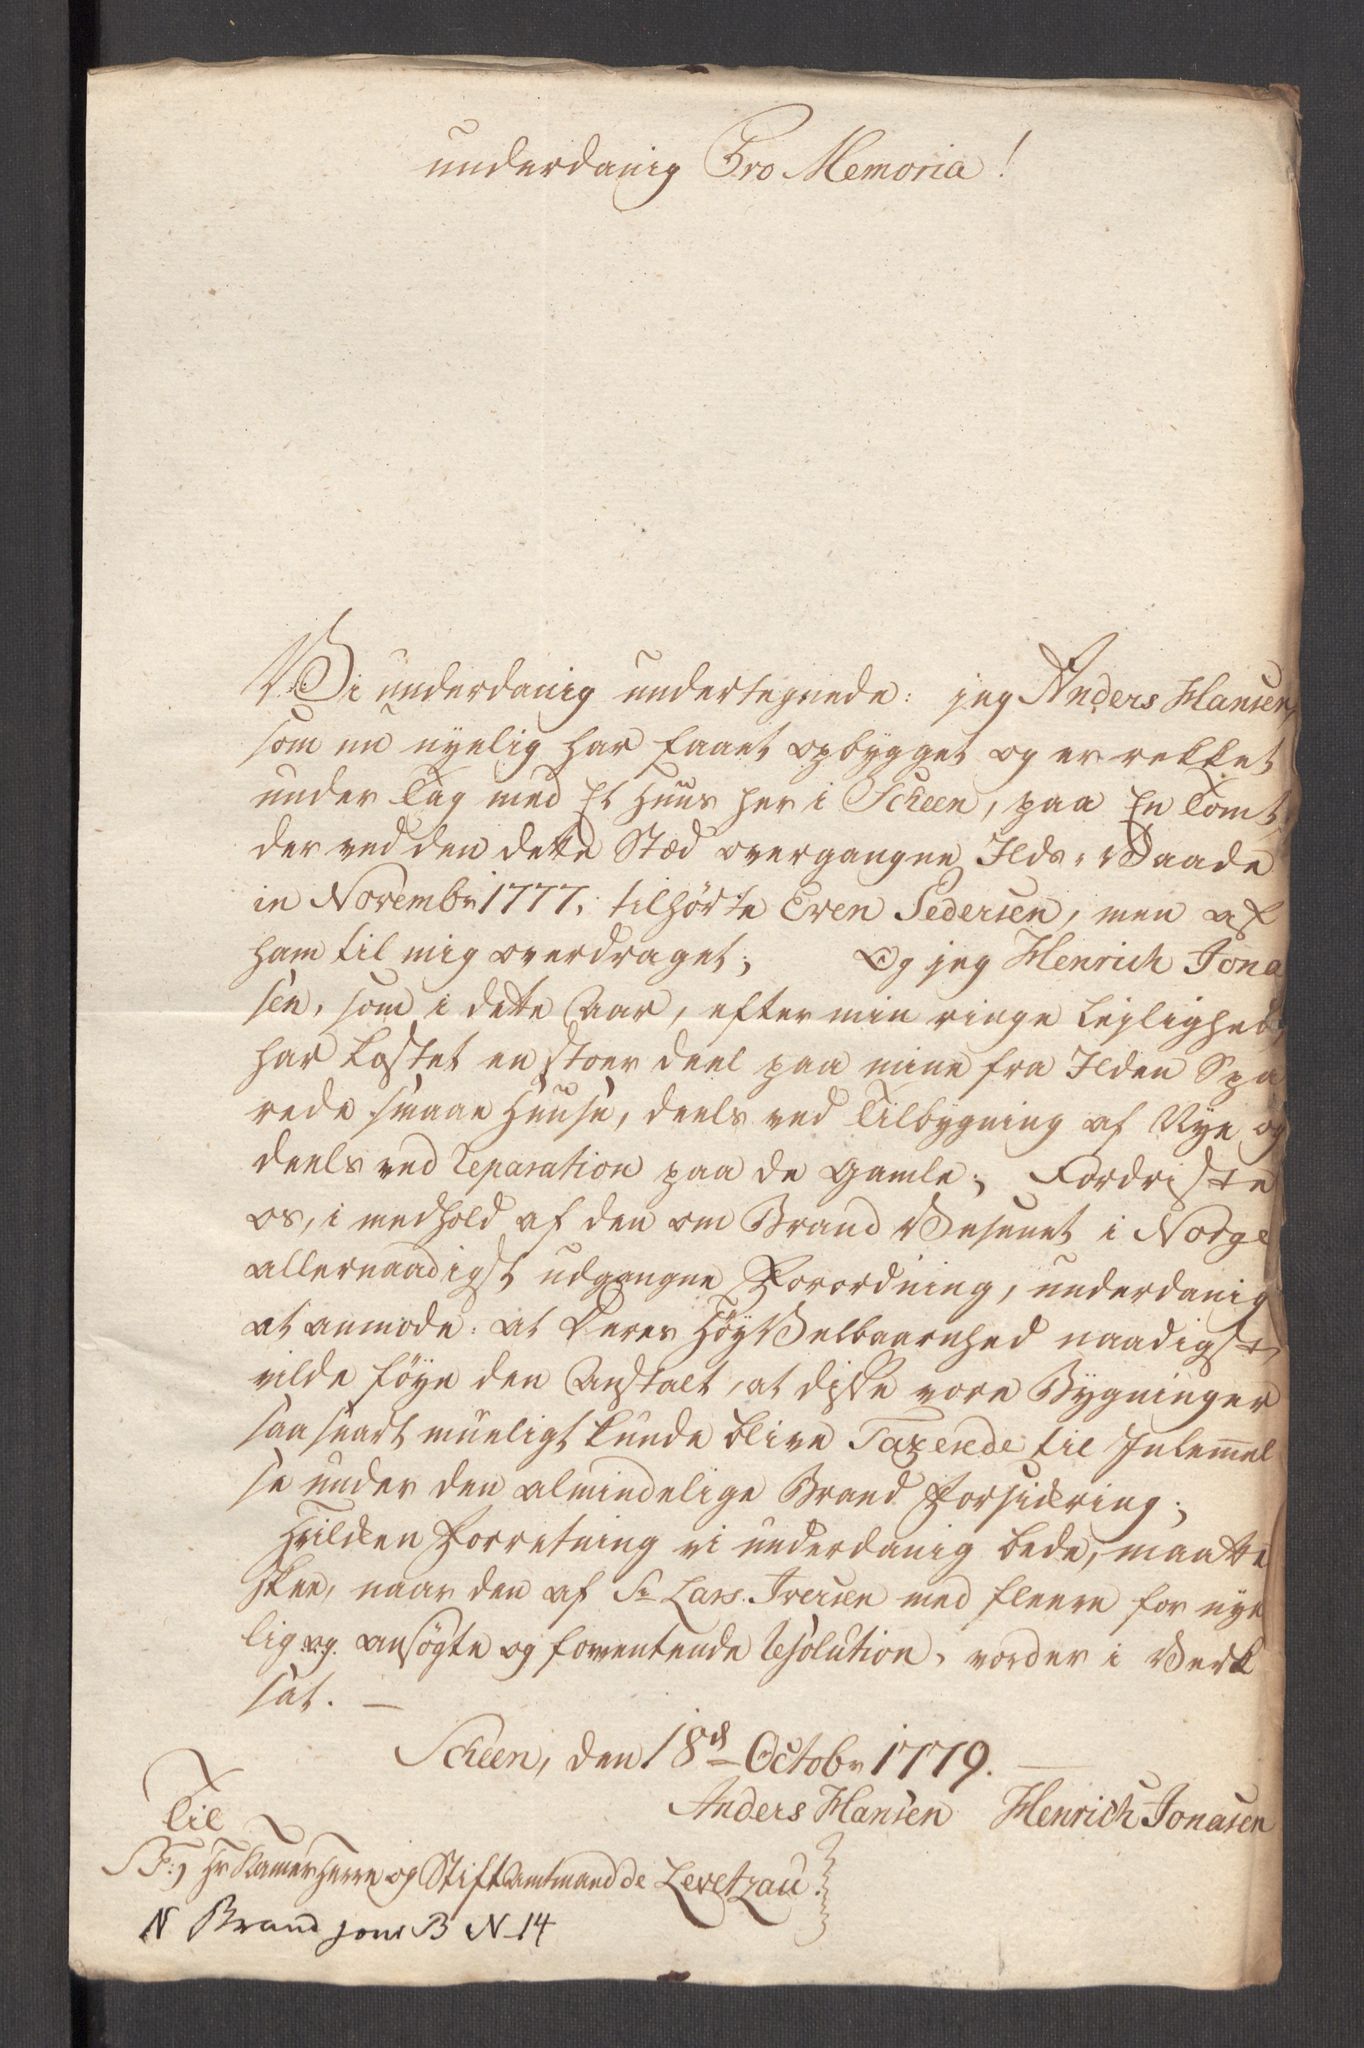 underdanig Pro Memoria!
Vi underdanig undertegnede: jeg Anders Hansen,
som nu nyelig har faaet opbygget og er rekket
under Tag med Et Huus her i Scheen, paa En Tomt,
der ved den dette Stæd overgangne Ilds-Vaade
in Novembr 1777, tilhørte Even Pedersen, men af
ham til mig overdraget; Og jeg Henrich Jona
sen, som i dette Aar, efter min ringe Lejlighed,
har kostet en stoer deel paa mine fra Ilden Spa
rede smaae Huuse, deels ved Tilbygning af Nye og
deels ved Reparation paa de Gamle; Fordriste
os, i medhold af den om Brand Vesenet i Norge
allernaadigst udgangne Forordning, underdanig
at anmode: at Deres HøyVelbaarnhed naadigst
vilde føye den Anstalt, at disse vore Bygninger
saa snart mueligt kunde blive Taxerede til Inlemmel
se under den almindelige Brand Forsikring;
Hvilken Forretning vi underdanig bede, maatte
skee, naar den af Sr Lars Iversen med fleere for nye
lig ansøgte og forventende Resolution, vorder i Verk
sat. —
Scheen, den 18d Octobr 1779. —
Anders Hansen Henrich Jonasen
Til
S: T: Hr Kamer Herre og Stift Amtmand de Levetzau.
N Brand jour B N 14